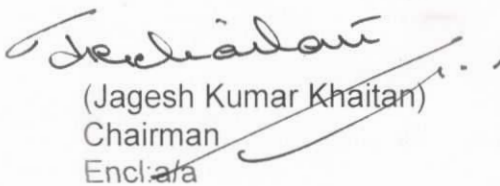 (Jagesh Kumar Khaitan)
Chairman
Encl:a/a